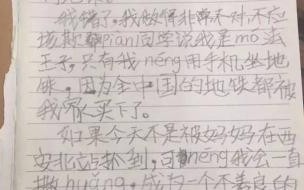 我错了,我做得非常不对,不应
该欺pian同学说我是mó法
王子,只有我néng用手机坐地
铁,因为全中国的地铁都被
我家买下了。
如果今天不是被妈妈在西
安北站抓到,可néng我会一直
撒huǎng,成为一个不善良的